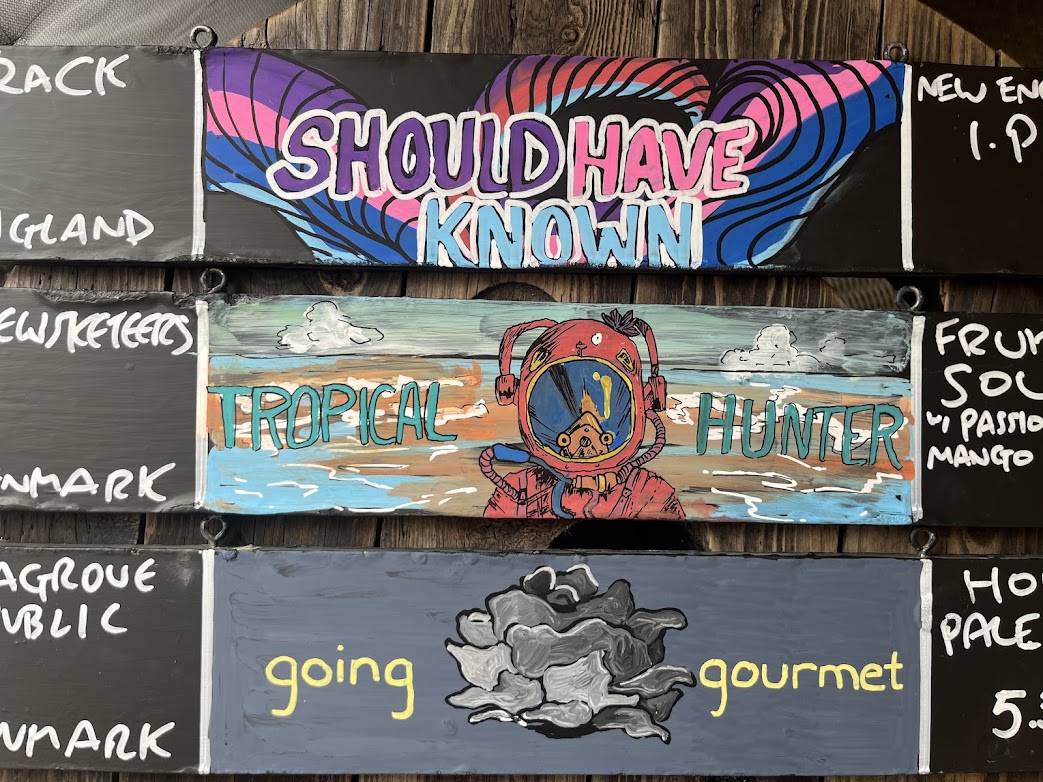 RACK
SHOULD HAVE
KNOWN
NEW EN
I.P
GLAND
EWSKETEERS
TROPICAL HUNTER
FRU
SOU
W/ PASSIO
MANGO
NMARK
AGROVE
UBLIC
going gourmet
HO
PALE
5.
NMARK